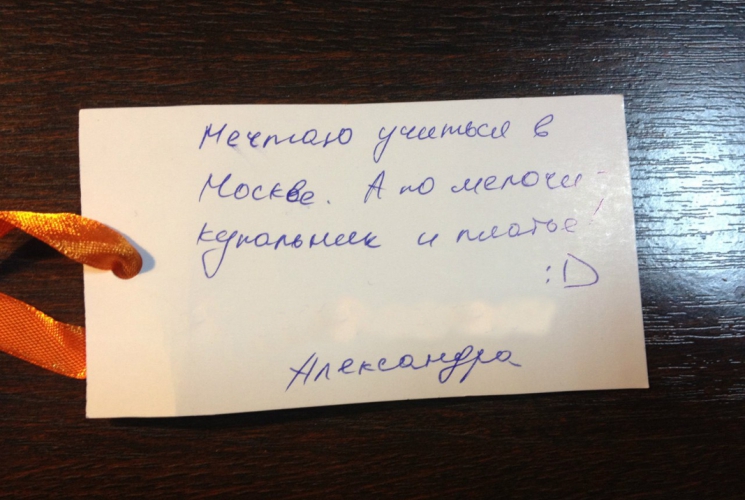 Мечтаю учиться в
Москве. А по мелочи -
купальник и платье!
:D
Александра